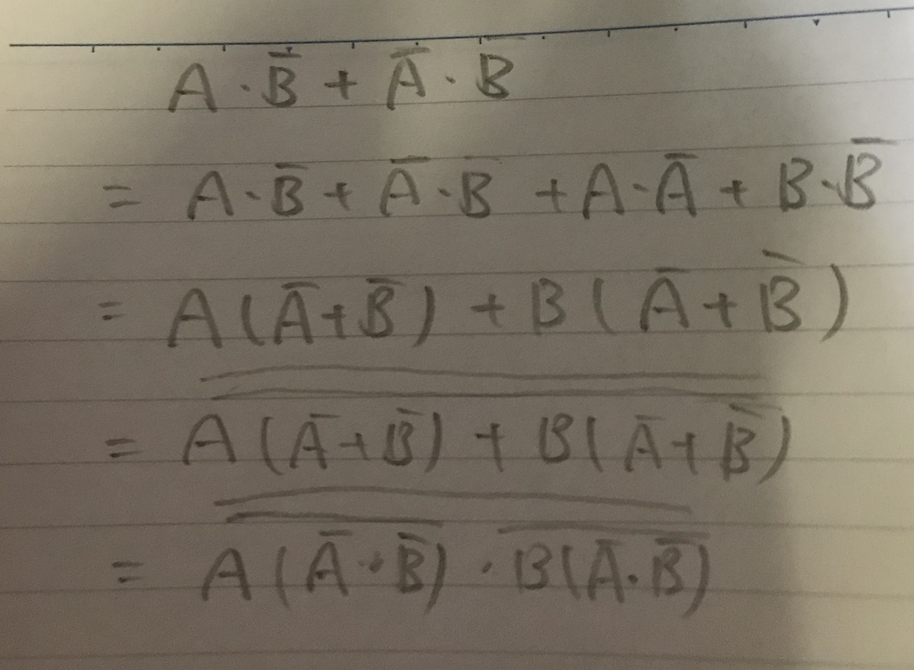 A · B̅ + A̅ · B
= A · B̅ + A̅ · B + A · A̅ + B · B̅
= A ( A̅ + B̅ ) + B ( A̅ + B̅ )
= A ( A̅ + B̅ ) + B ( A̅ + B̅ )
= A ( A̅ · B̅ ) · B ( A̅ · B̅ )